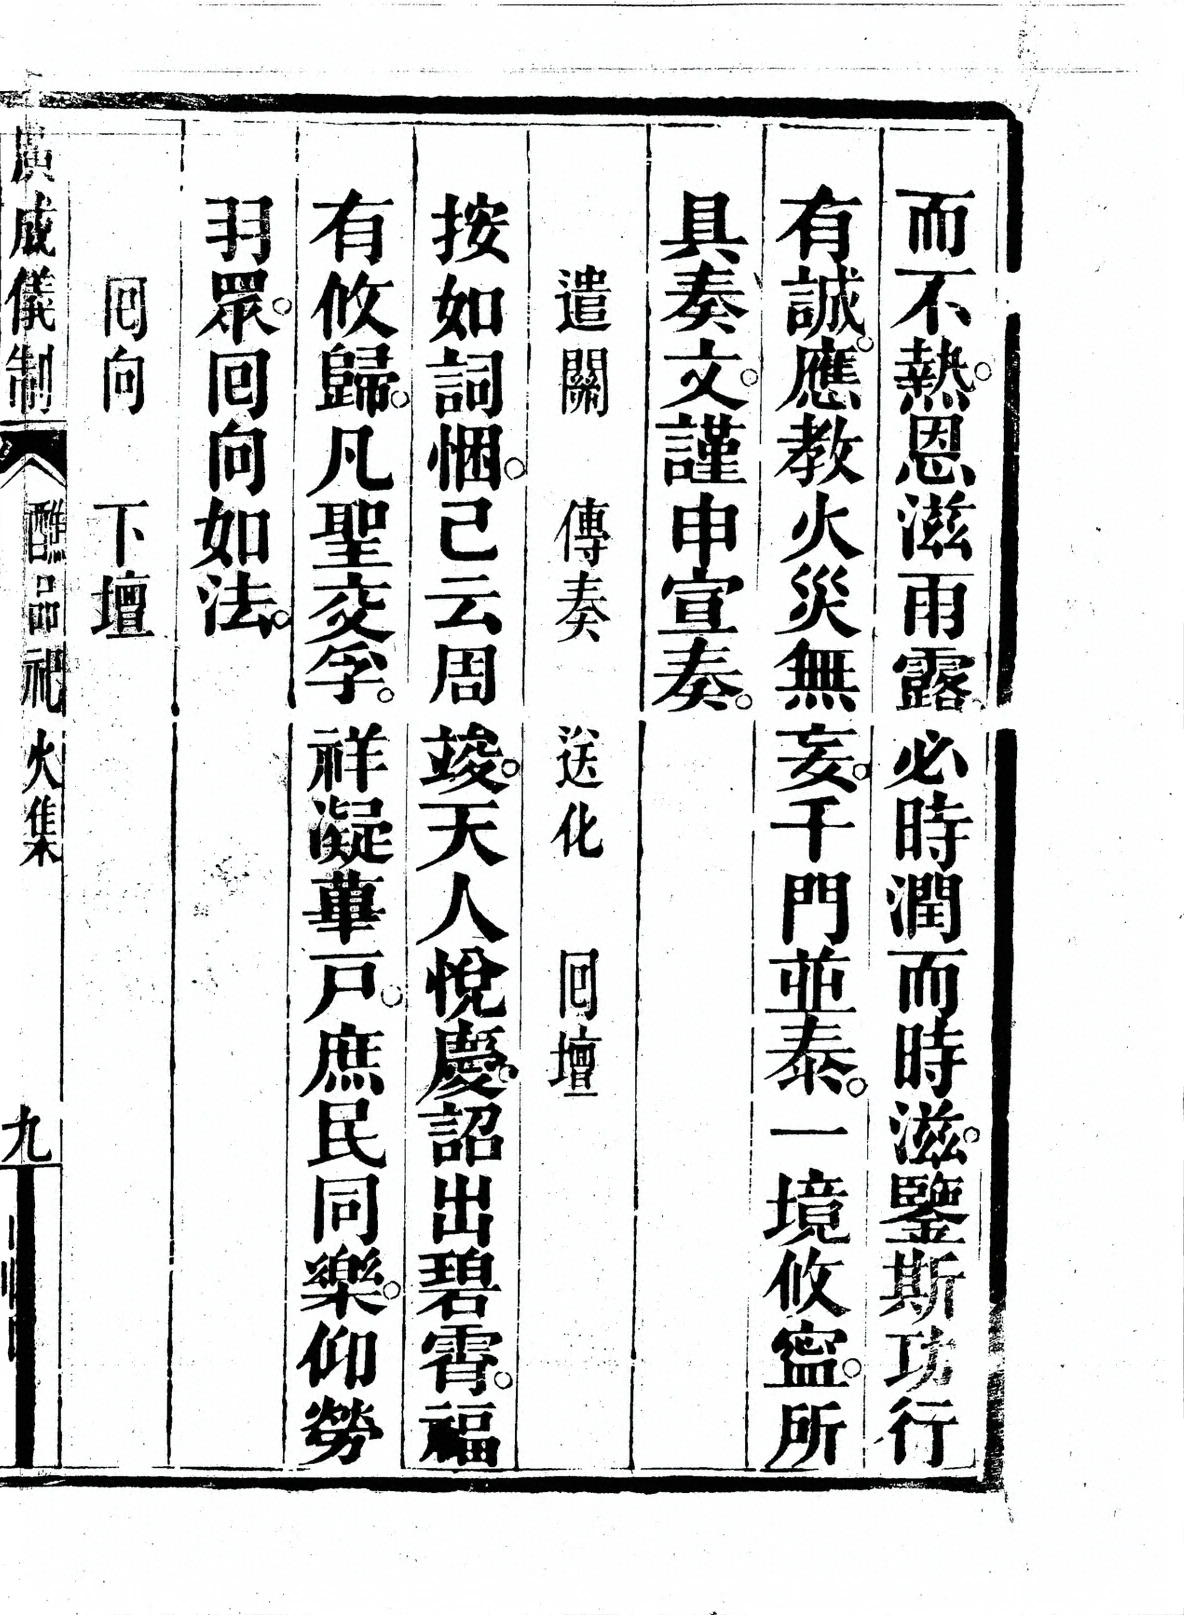 而不熱。恩滋雨露。必時潤而時滋。鑒斯功行
有誠。應教火災無妄。千門並泰。一境攸寍。所
具奏文。謹申宣奏。
遣關　傳奏　送化　囘壇
按如詞悃。己云周竣。天人悅慶。詔出碧霄。福
有攸歸。凡聖交孚。祥凝華戸。庶民同樂。仰勞
羽眾。囘向如法。
囘向　下壇
廣成儀制　醮品祀火集　九